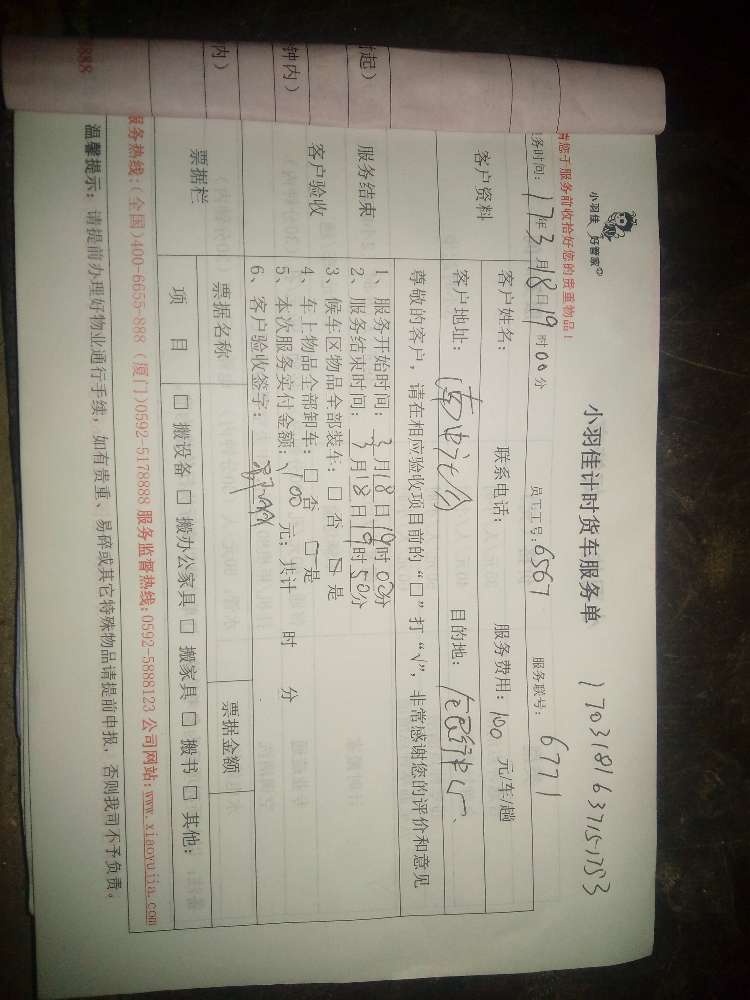 小羽佳 好管家
小羽佳计时货车服务单
1703181637151753
您于服务前收拾好您的贵重物品！
务时间：17年3月18日19时00分 员工工号：6567 服务联号：6771
客户资料
客户姓名： 联系电话： 服务费用：100 元/车/趟
客户地址： 目的地：
尊敬的客户，请在相应验收项目前的“□”打“√”，非常感谢您的评价和意见
服务结束
客户验收
1、服务开始时间：3月18日19时00分
2、服务结束时间：3月18日19时50分
3、候车区物品全部装车：□ 否 □ 是
4、车上物品全部卸车：□ 否 □ 是
5、本次服务实付金额：100元；共计 时 分
6、客户验收签字：
票据栏
票据名称 票据金额
项 目 □ 搬设备 □ 搬办公家具 □ 搬家具 □ 搬书 □ 其他：
服务热线：(全国)400-6655-888 (厦门)0592-5178888 服务监督热线：0592-5888123 公司网站：www.xiaoyujia.com
温馨提示：请提前办理好物业通行手续，如有贵重、易碎或其它特殊物品请提前申报，否则我司不予负责。
时起）
钟内）
内）
8888